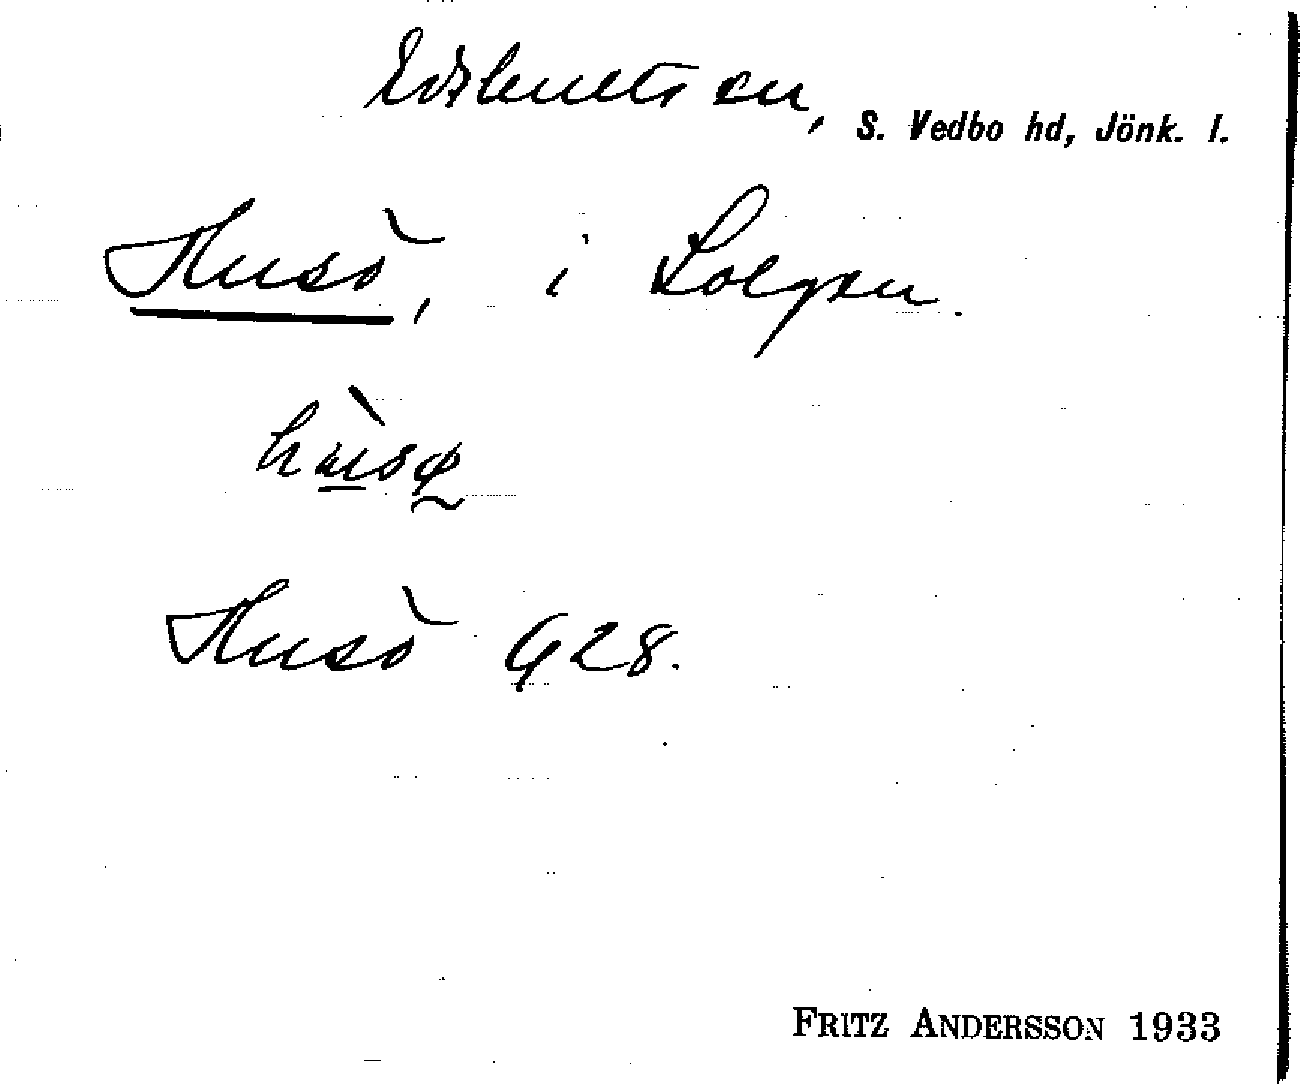 Edshult sn, S. Vedbo hd, Jönk. l.
Husö, i Solgen.
hùsø
Husö G28.
FRITZ ANDERSSON 1933